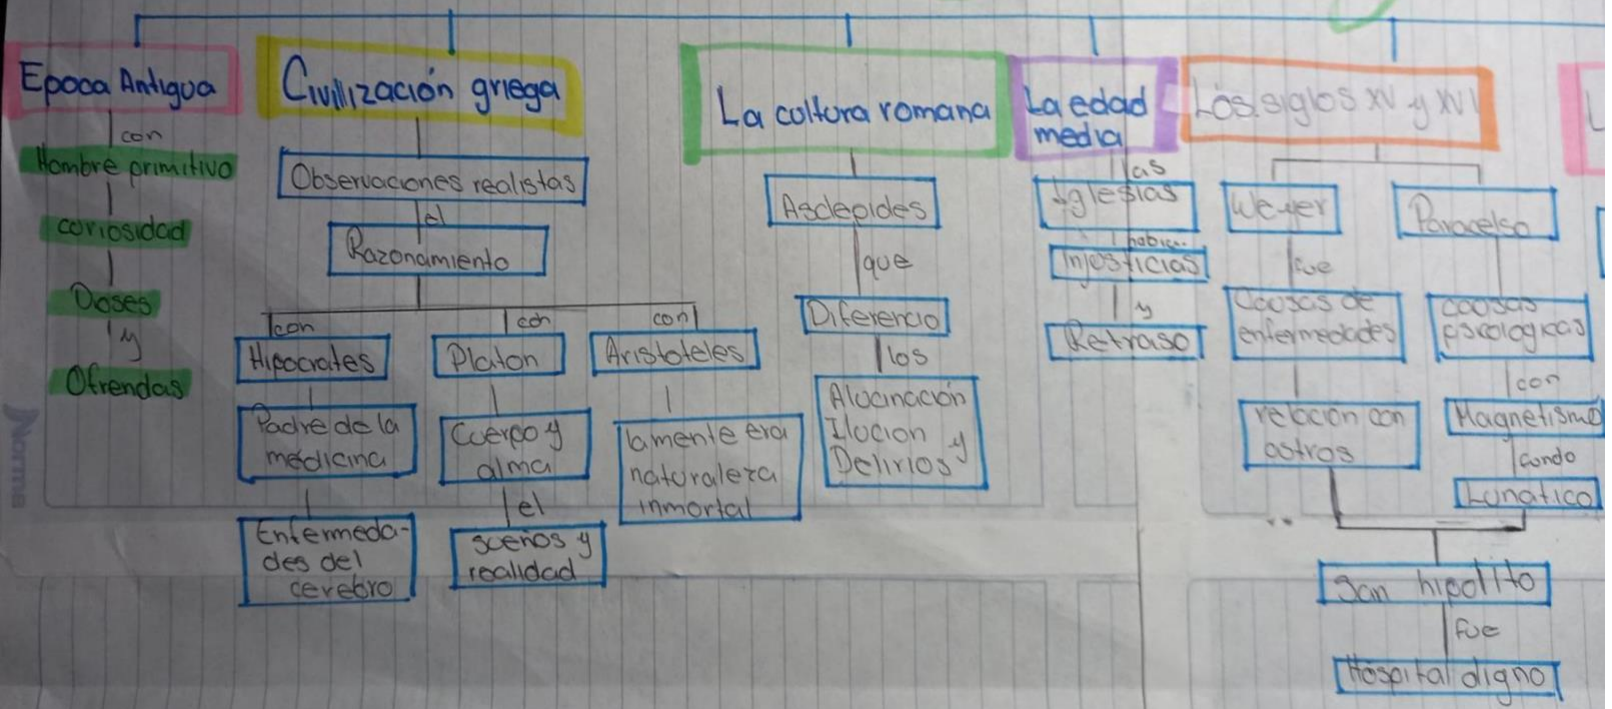 Epoca Antigua
con
Hombre primitivo
coriosidad
Dioses
y
Ofrendas
Civilización griega
Observaciones realistas
el
Razonamiento
con
Hipocrates
Padre de la
medicina
Enfermeda-
des del
cerebro
con
Platon
Cuerpo y
alma
el
sueños y
realidad
con
Aristoteles
la mente era
naturaleza
inmortal
La coltura romana
Asclepides
que
Diferencio
los
Alucinación
Ilucion y
Delirios
La edad
media
las
Iglesias
habia
Injosticias
y
Retraso
Los siglos XV y XVI
Weyer
fue
Causas de
enfermedades
relacion con
astros
Paracelso
causas
psicologicas
con
Magnetismo
fundo
Lunatico
San hipolito
fue
Hospital digno
L
Norma